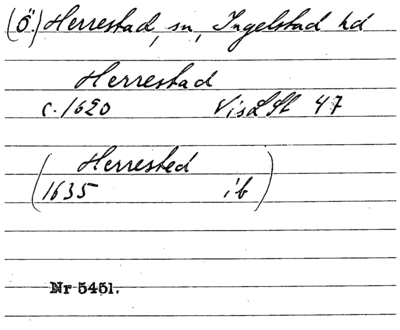 (Ö.) Herrestad, sn, Ingelstad hd
Herrestad
c. 1620 VisLSt 47
(Herrested
1635 ib)
Nr 5451.